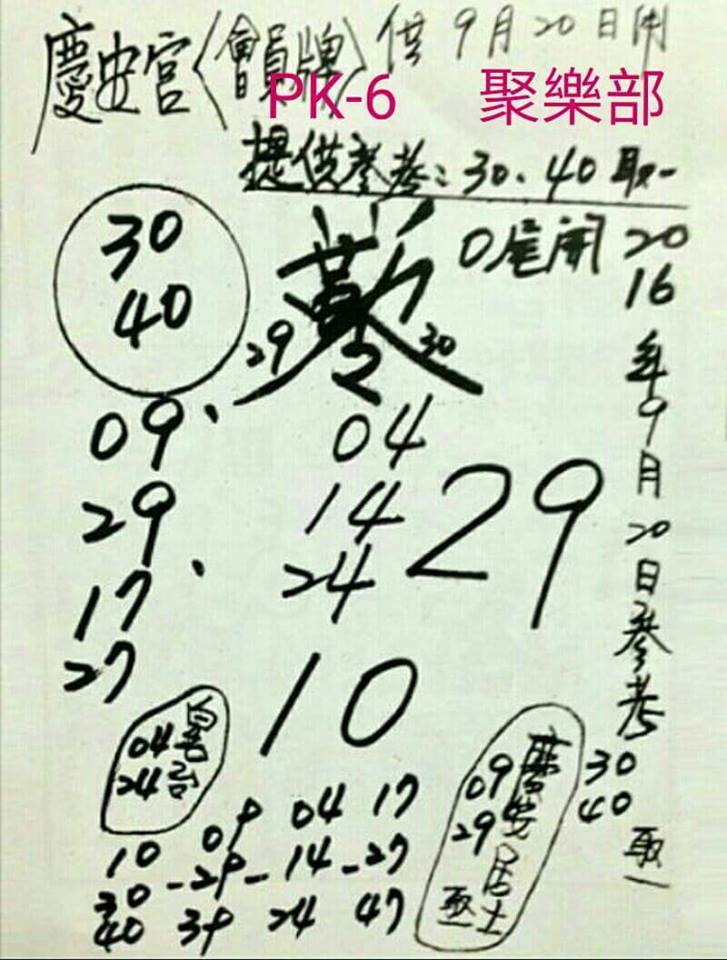 慶安宮〈會員牌〉供9月20日開
PK-6 聚樂部
提供參考:30、40取一
0尾開
2016年9月20日參考
30
40
29
30
09、
29
17、
27
04
14
24
29
10
04
24
10
30
40
09
29
39
04
14
24
17
27
47
09
29
慶安居士
取一
30
40
取一